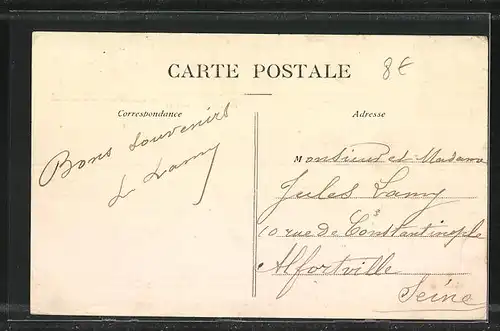 CARTE POSTALE
8€
Correspondance
Adresse
Bons Souvenirs
L Lamy
Monsieur et Madame
Jules Lamy
10 rue de Constantinople
Alfortville
Seine